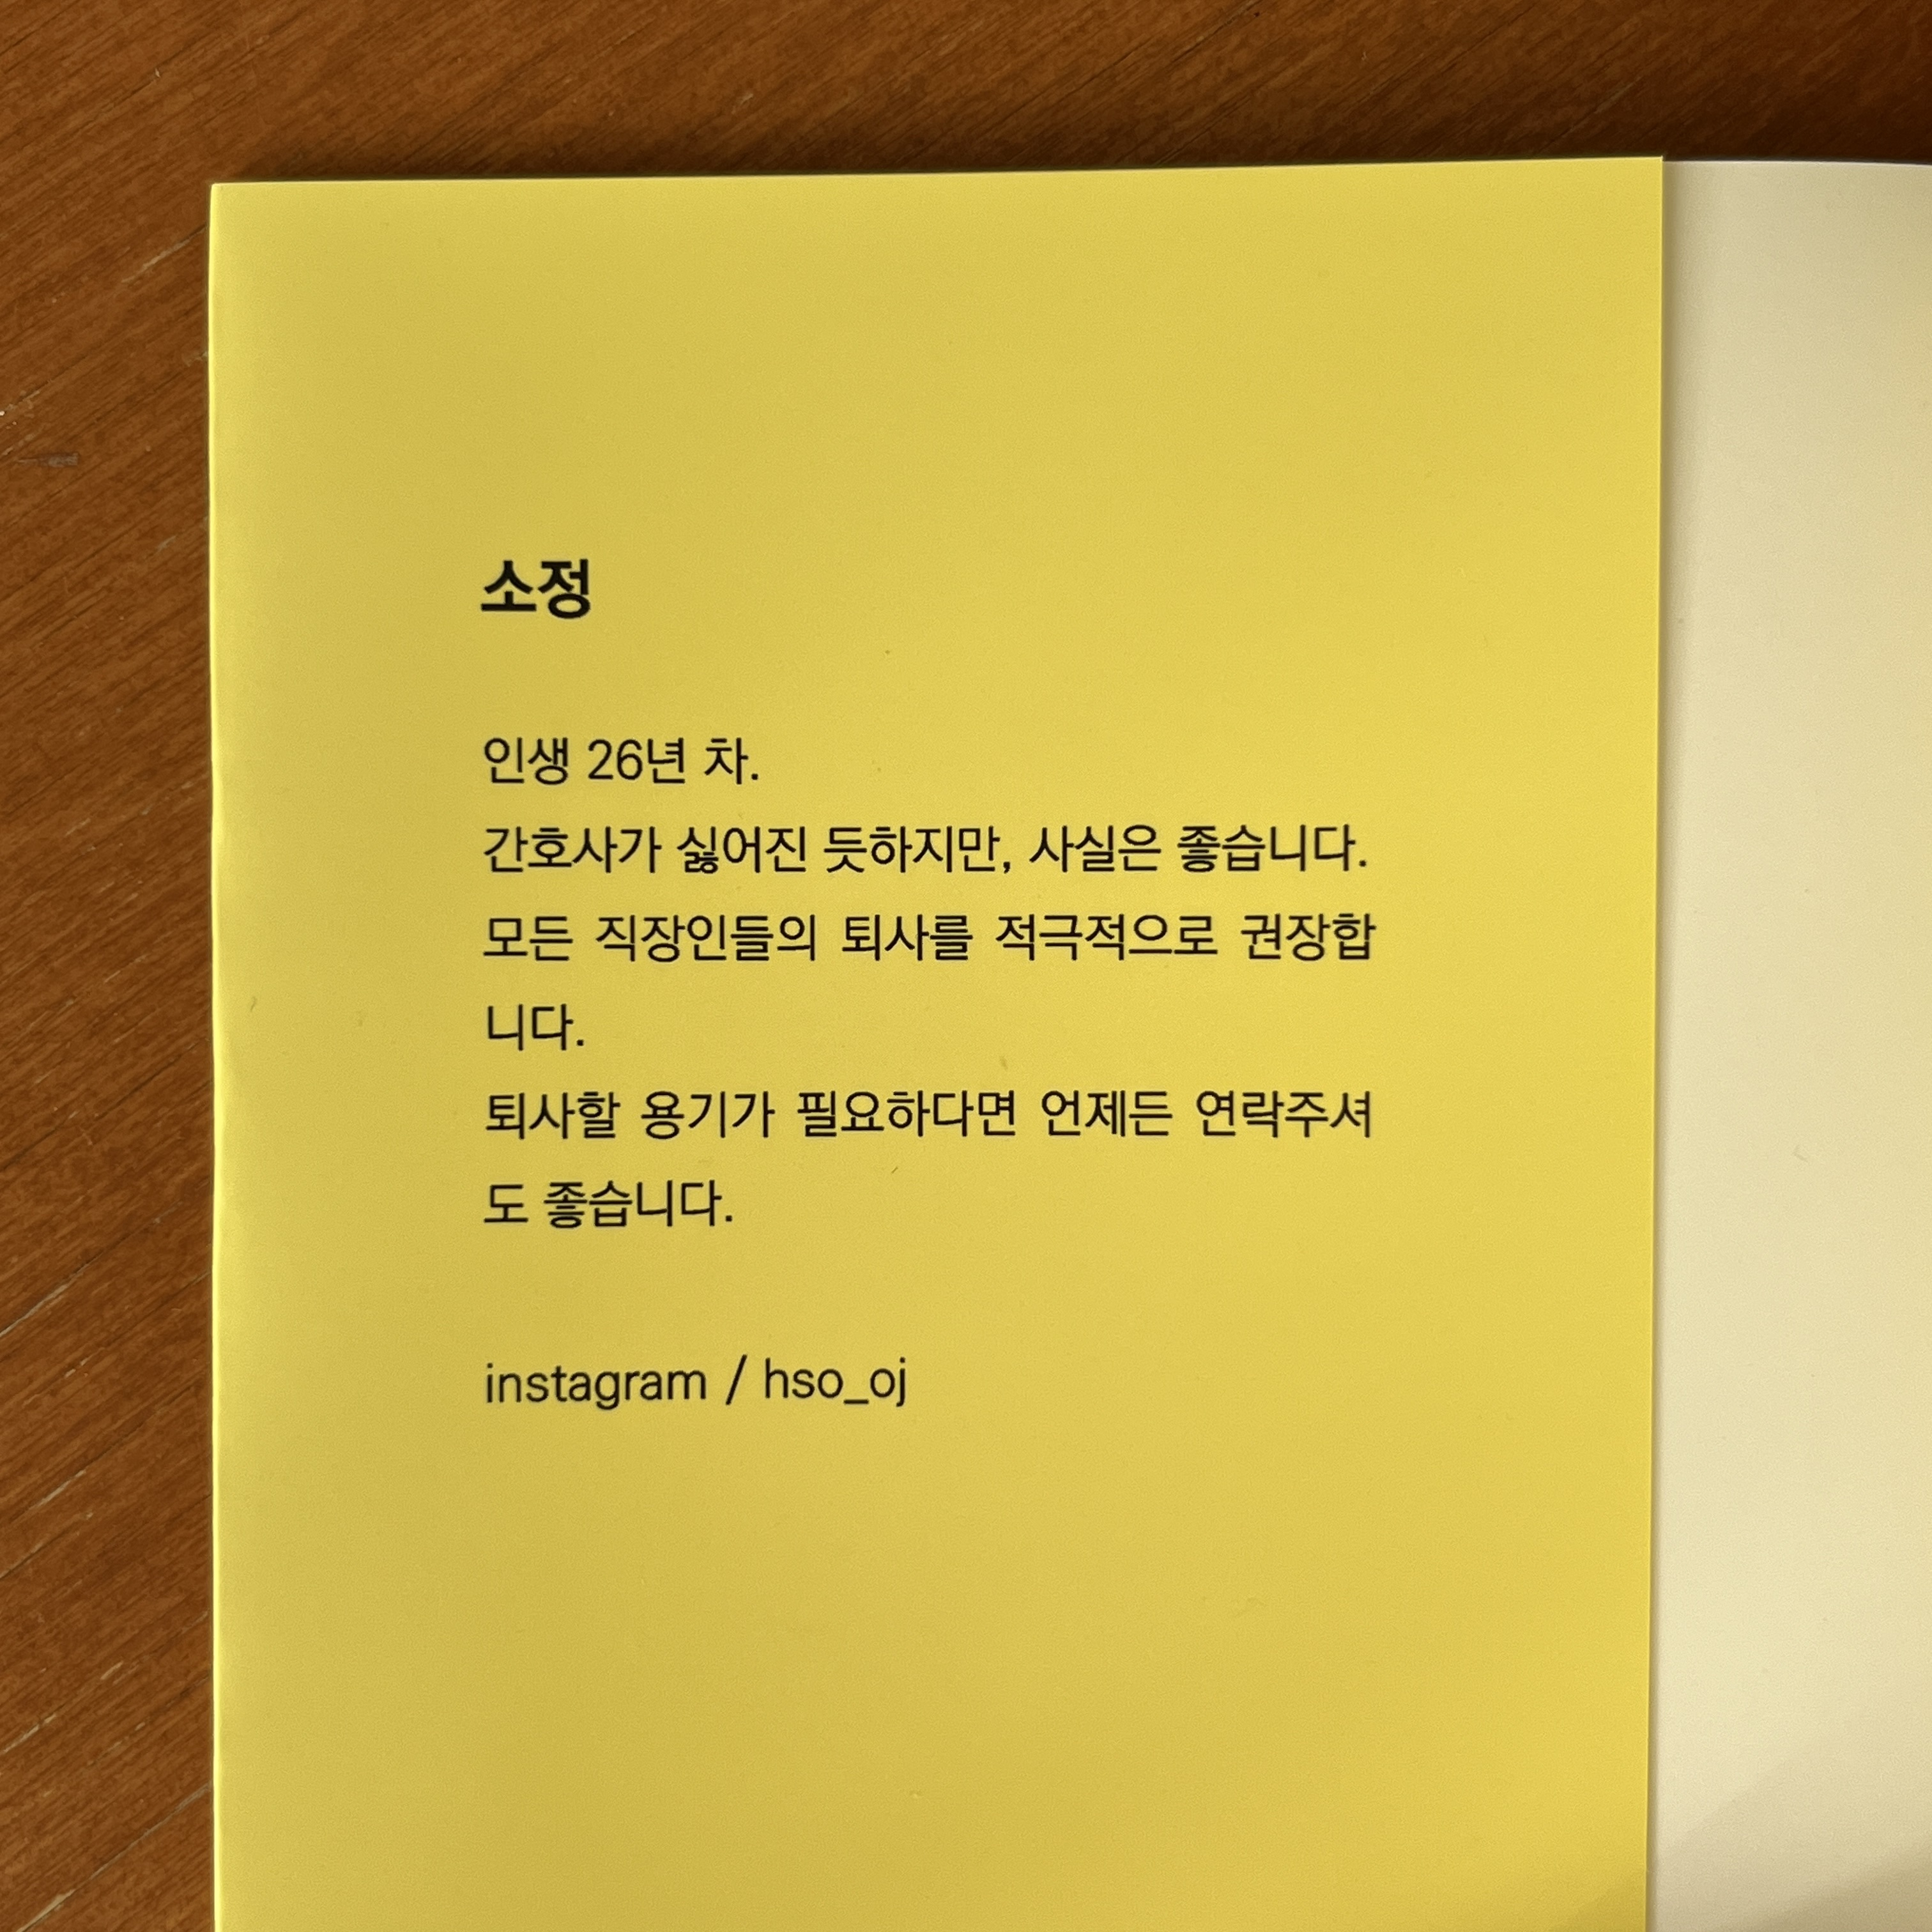 소정
인생 26년 차.
간호사가 싫어진 듯하지만, 사실은 좋습니다.
모든 직장인들의 퇴사를 적극적으로 권장합
니다.
퇴사할 용기가 필요하다면 언제든 연락주셔
도 좋습니다.
instagram / hso_oj